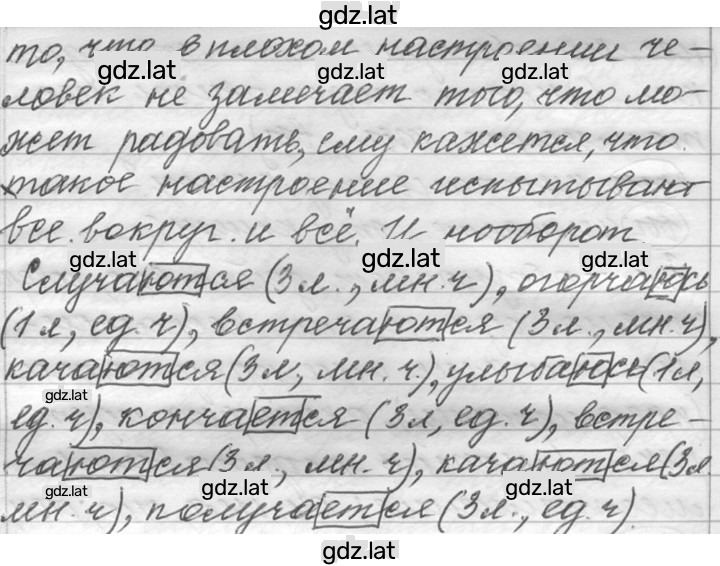 gdz.lat
то, что в плохом настроении че-
gdz.lat gdz.lat gdz.lat
ловек не замечает того, что мо-
жет радовать, ему кажется, что
такое настроение испытывают
все вокруг и всё. И нооборот
gdz.lat gdz.lat gdz.lat
Случаются (3 л., мн. ч), огорчаюсь
(1 л, ед. ч), встречаются (3 л., мн. ч),
качаются (3 л, мн. ч.), улыбаюсь (1 л,
gdz.lat
ед. ч), кончается (3 л, ед. ч), встре-
чаются (3 л., мн. ч), качаются (3 л.
gdz.lat gdz.lat gdz.lat
мн. ч), получается (3 л., ед. ч)
gdz.lat